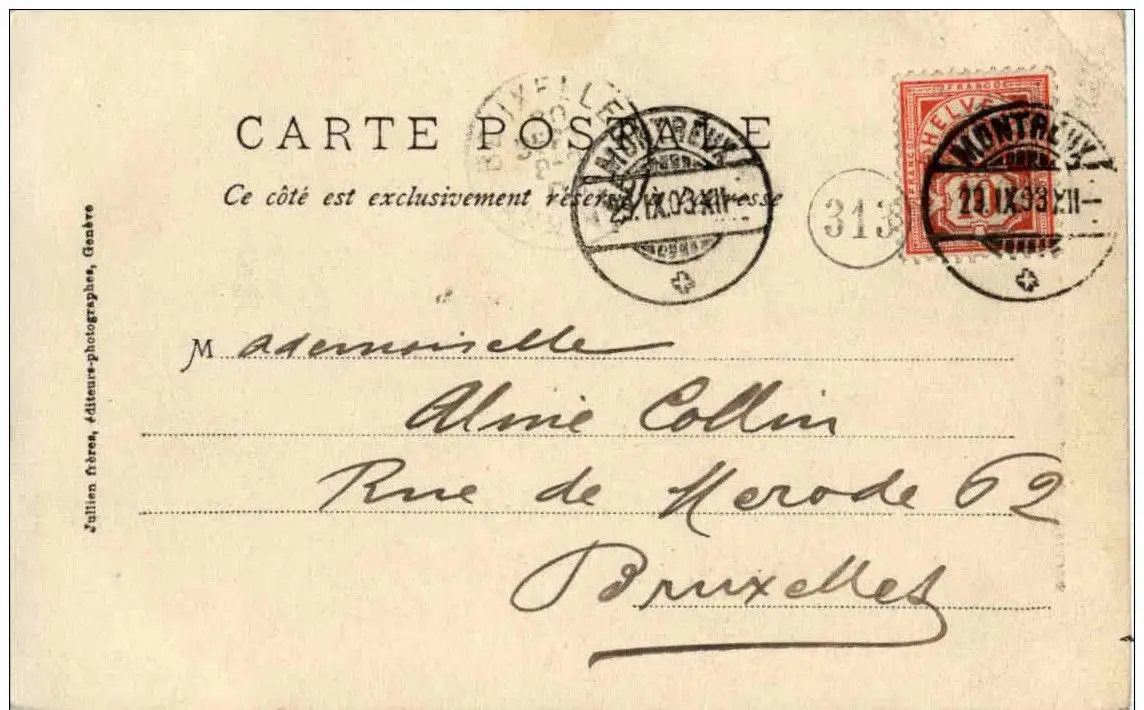 CARTE POSTALE
Ce côté est exclusivement réservé à l'adresse
BRUXELLES
MONTREUX
29.IX.03.XII-
313
FRANCO
HELVETIA
FRANCO
MONTREUX
29.IX.03.XII-
Mademoiselle
Aline Collin
Rue de Merode 62
Bruxelles
Jullien frères, éditeurs-photographes, Genève